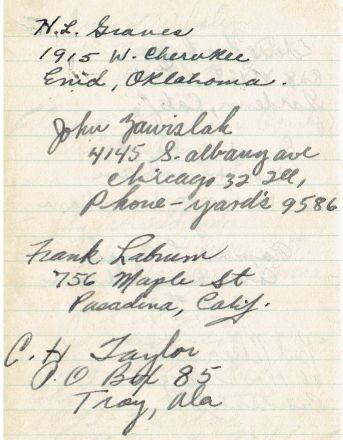 H.L. Graves
1915 W. Cherokee
Enid, Oklahoma.
John Zawislak
4145 S. albany ave
Chicago 32 Ill,
Phone - yard's 9586
Frank Labrum
756 Maple St
Pasadina, Calif.
C. H Taylor
P.O Box 85
Troy, Ala